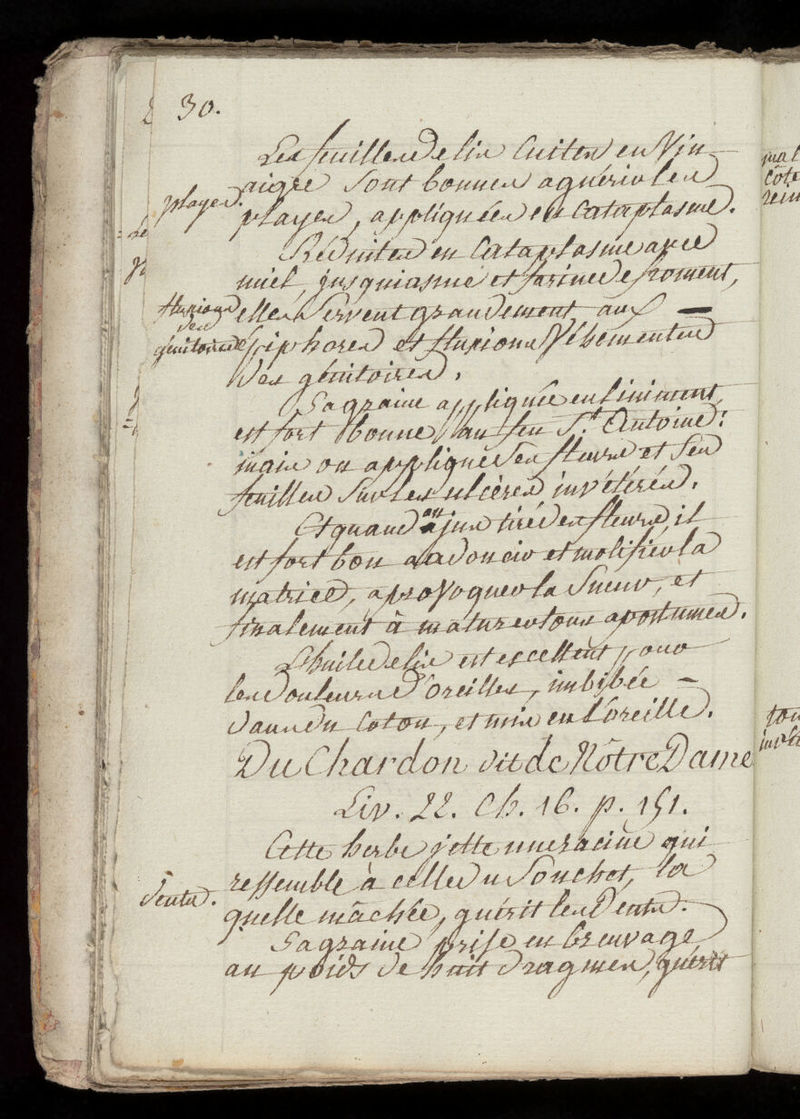 30.
Les feuilles de lis cuites en Vin-
aigre sont bonnes a guérir les
playes.
playes, appliquées en cataplasme.
Réduites en Cataplasme avec
miel, jusquiasme et farine de froment,
elles servent grandement aux —
fluxions
des
génitoires
Epiphores et fluxions Véhementes
des génitoires.
Sa graine appliquée en liniment,
est fort bonne au feu St. Antoine:
mais on applique ses fleurs et ses
feuilles sur les ulcères invétérés.
Et quand au jus tiré des fleurs il
est fort bon a adoucir et molifier la
matrice, a provoquer la sueur, et
finalement à maturer tous apostumes.
L'huile de lis est excellent pour
les douleurs d'oreilles, imbibée —
dans du Coton, et mis en l'oreille.
Du Chardon dit de Nôtre Dame
Liv. 22. Ch. 16. p. 151.
Cette herbe jette une racine qui
ressemble à celle du Souchet, la
dents.
quelle mâchée, guérit les Dents.
Sa graine prise en breuvage
au poids de huit dragmes, guérit
mal
côté
tou